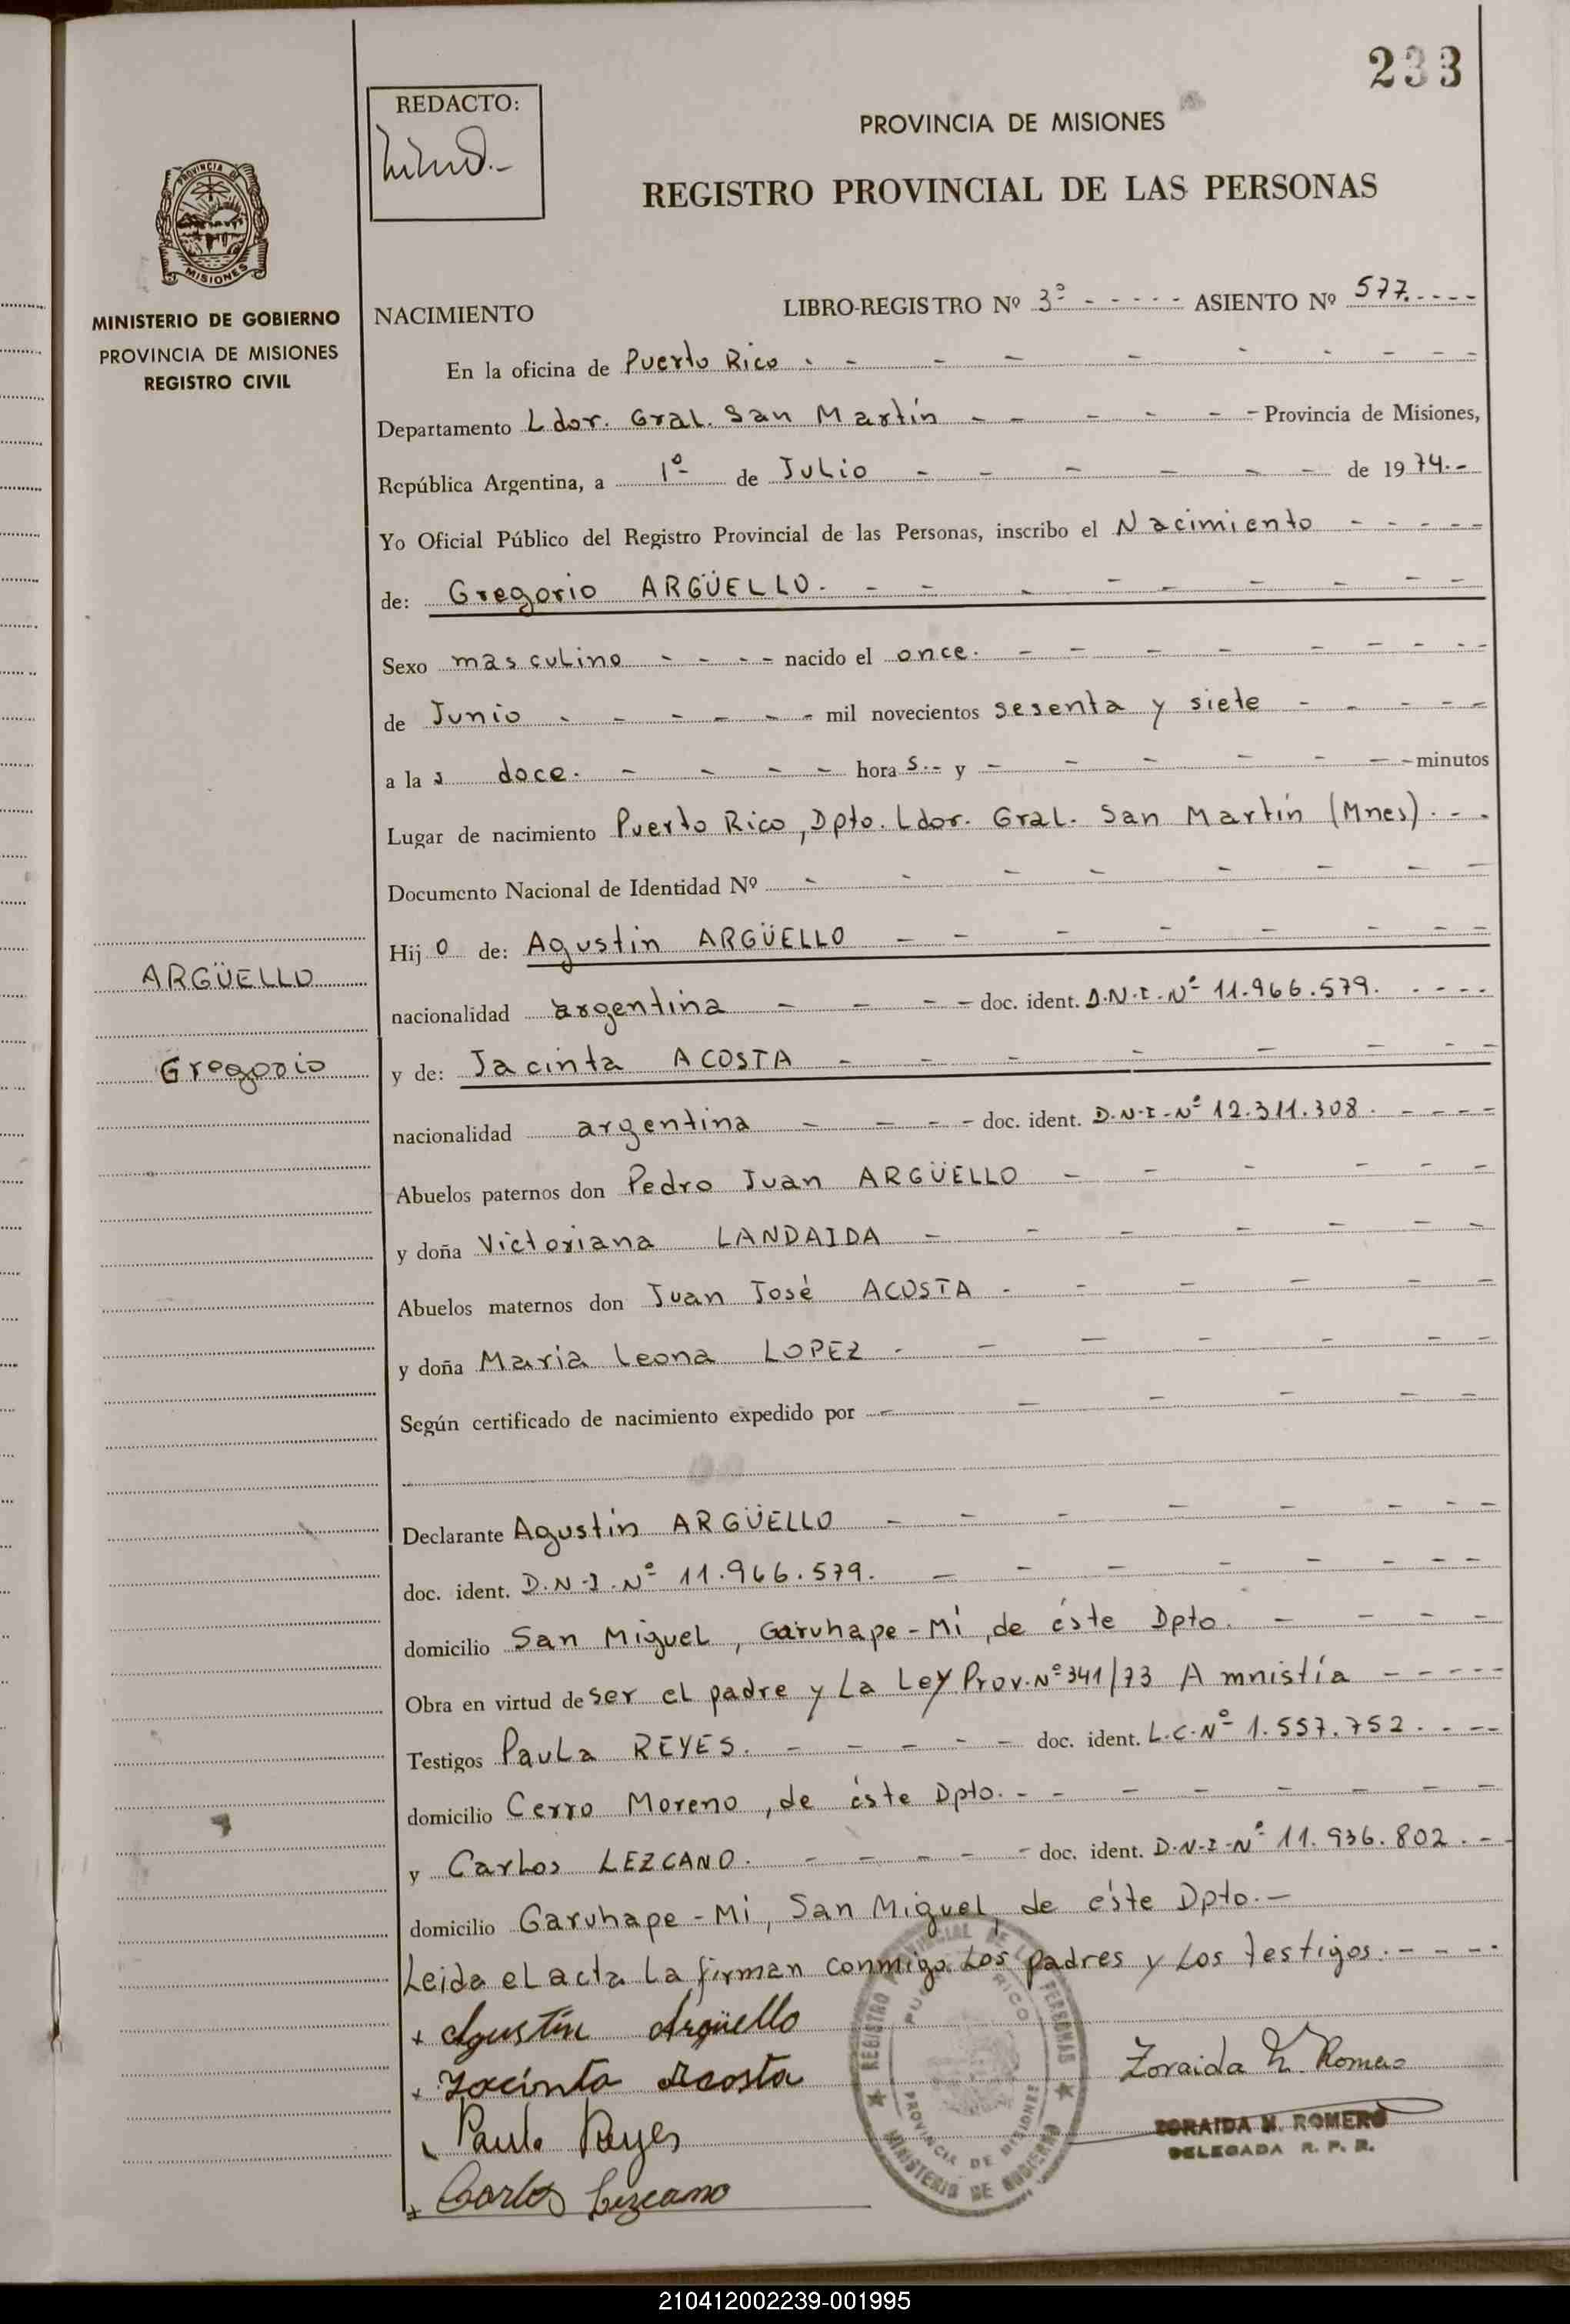 233
REDACTO:
PROVINCIA DE MISIONES
REGISTRO PROVINCIAL DE LAS PERSONAS
PROVINCIA
MISIONES
MINISTERIO DE GOBIERNO
PROVINCIA DE MISIONES
REGISTRO CIVIL
NACIMIENTO LIBRO-REGISTRO Nº 3º - - - - - ASIENTO Nº 577. - - - -
En la oficina de Puerto Rico - - - - - - - - - -
Departamento Ldor. Gral. San Martín - - - - - - Provincia de Misiones,
República Argentina, a 1º de Julio - - - - - - de 1974.-
Yo Oficial Público del Registro Provincial de las Personas, inscribo el Nacimiento - - - - -
de: Gregorio ARGÜELLO. - - - - - - - - -
Sexo masculino - - - - nacido el once. - - - - - - - - -
de Junio - - - - - - mil novecientos sesenta y siete - - - - -
a las doce. - - - - horas.- y - - - - - - - minutos
Lugar de nacimiento Puerto Rico, Dpto. Ldor. Gral. San Martín (Mnes). - -
Documento Nacional de Identidad Nº - - - - - - - -
Hijo de: Agustín ARGÜELLO - - - - - - - -
ARGÜELLO
nacionalidad argentina - - - - doc. ident. D.N.I.Nº 11.966.579. - - - -
Gregorio
y de: Jacinta ACOSTA - - - - - - - -
nacionalidad argentina - - - - doc. ident. D.N.I.Nº 12.311.308. - - - -
Abuelos paternos don Pedro Juan ARGÜELLO - - - - - -
y doña Victoriana LANDAIDA - - - - - - -
Abuelos maternos don Juan José ACOSTA - - - - - -
y doña Maria Leona LOPEZ - - - - - - -
Según certificado de nacimiento expedido por - - - - - -
Declarante Agustín ARGÜELLO - - - - - - - -
doc. ident. D.N.I.Nº 11.966.579. - - - - - - - -
domicilio San Miguel, Garuhape-Mí, de éste Dpto. - - - -
Obra en virtud de ser el padre y La Ley Prov.Nº341/73 Amnistía - - - - -
Testigos Paula REYES. - - - - - doc. ident. L.C.Nº 1.557.752. - - -
domicilio Cerro Moreno, de éste Dpto. - - - - - - - -
y Carlos LEZCANO. - - - - - doc. ident. D.N.I.Nº 11.936.802. - -
domicilio Garuhape-Mí, San Miguel, de éste Dpto.-
Leida el acta la firman conmigo los padres y los testigos. - - - -
+ Agustín Argüello
+ Jacinta Acosta
Paula Reyes
+ Carlos Lezcano
REGISTRO PROVINCIAL DE LAS PERSONAS
PUERTO RICO
PROVINCIA DE MISIONES
★ MINISTERIO DE GOBIERNO ★
Zoraida M. Romero
ZORAIDA M. ROMERO
DELEGADA R. P. P.
210412002239-001995